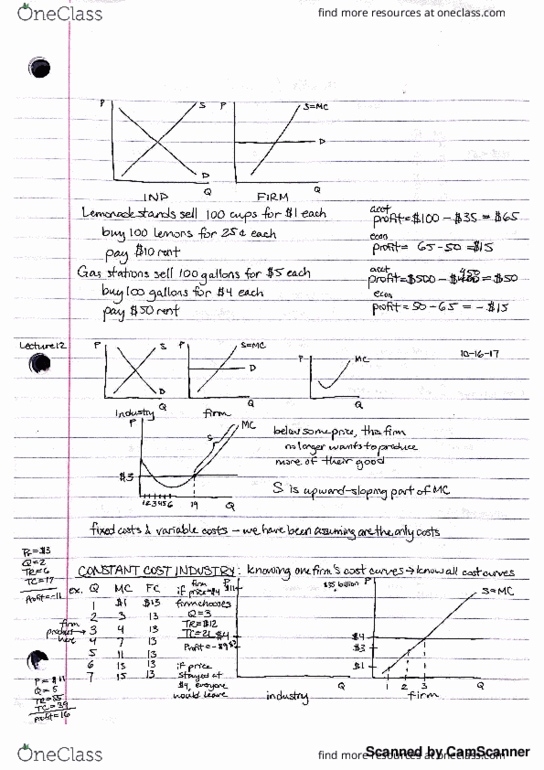 OneClass
find more resources at oneclass.com
P S P S=MC
D
D
Q Q
IND FIRM
Lemonade stands sell 100 cups for $1 each
buy 100 lemons for 25¢ each
pay $10 rent
acct
profit = $100 - $35 = $65
econ
profit = 65-50 = $15
Gas stations sell 100 gallons for $5 each
buy 100 gallons for $4 each
pay $50 rent
acct
450
profit = $500 - $400 = $50
econ
profit = 50 - 65 = - $15
Lecture 12
10-16-17
P S P S=MC P MC
D D
Q Q Q
industry firm
P
MC
S
$3
1 2 3 4 5 6 19 Q
below some price, this firm
no longer wants to produce
more of their good
S is upward-sloping part of MC
fixed costs & variable costs - we have been assuming are the only costs
CONSTANT COST INDUSTRY: knowing one firm's cost curves → know all cost curves
P=$3
Q=2
TR=6
TC=17
profit=-11
firm
produces →
here
P=$11
Q=5
TR=55
TC=39
profit=16
ex. Q MC FC
1 $1 $13
2 3 13
3 4 13
4 7 13
5 11 13
6 13 13
7 15 13
if firm
price=$4
firm chooses
Q=3
TR=$12
TC=21
Profit=-$9
if price
stayed at
$4, everyone
would leave
P
$11
$4
$3
Q
industry
P
S=MC
$4
$3
$1
1 2 3
Q
firm
OneClass
find more resources at oneclass.com
Scanned by CamScanner